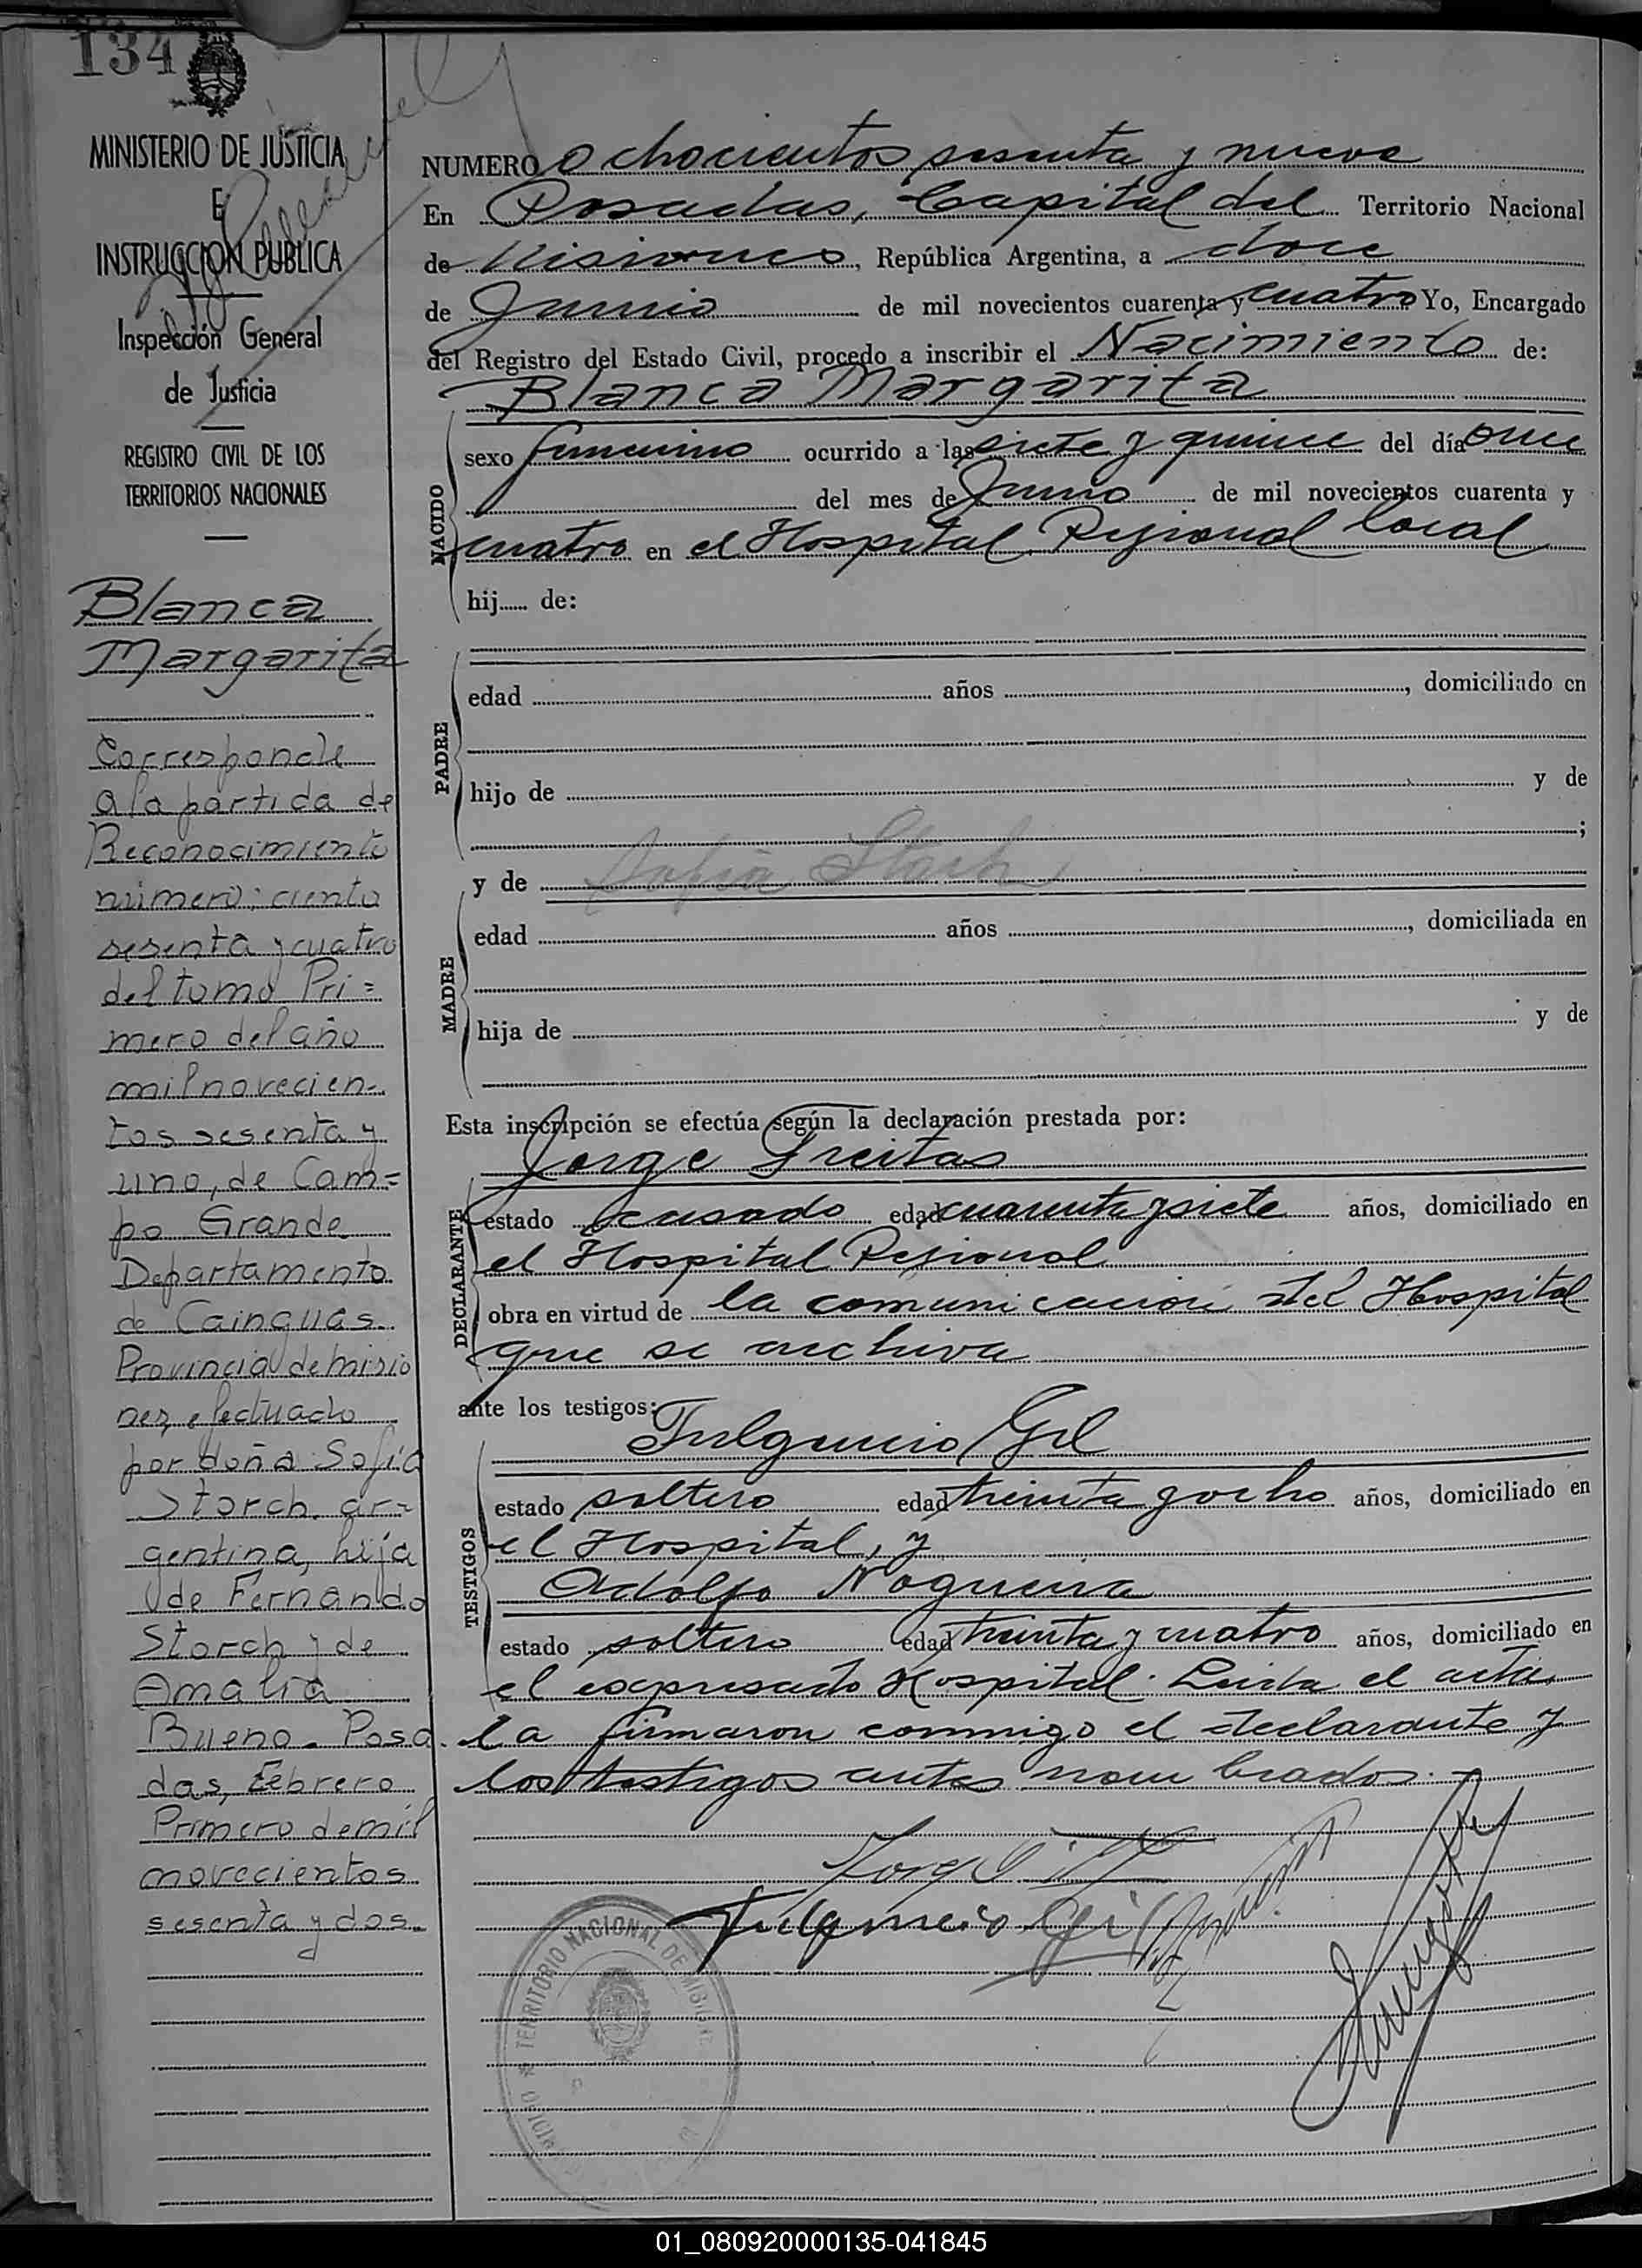 134
MINISTERIO DE JUSTICIA
E
INSTRUCCION PUBLICA
Inspección General
de Justicia
REGISTRO CIVIL DE LOS
TERRITORIOS NACIONALES
Blanca
Margarita
Corresponde
a la partida de
Reconocimiento
número: ciento
sesenta y cuatro
del tomo Pri=
mero del año
mil novecien-
tos sesenta y
uno, de Cam=
po Grande
Departamento
de Cainguas.
Provincia de misio
nes, efectuado
por doña Sofia
Storch, ar=
gentina, hija
de Fernando
Storch y de
Amalia
Bueno. Posa
das, Febrero
Primero de mil
novecientos
sesenta y dos.
NUMERO ochocientos sesenta y nueve
En Posadas, Capital del Territorio Nacional
de Misiones, República Argentina, a doce
de Junio de mil novecientos cuarenta y cuatro Yo, Encargado
del Registro del Estado Civil, procedo a inscribir el Nacimiento de:
Blanca Margarita
NACIDO
sexo femenino ocurrido a las siete y quince del día once
del mes de Junio de mil novecientos cuarenta y
cuatro en el Hospital Regional local
hij...... de:
PADRE
edad años , domiciliado en
hijo de y de
;
y de Sofia Storch
MADRE
edad años , domiciliada en
hija de y de
Esta inscripción se efectúa según la declaración prestada por:
Jorge Freitas
DECLARANTE
estado casado edad cuarenta y siete años, domiciliado en
el Hospital Regional
obra en virtud de la comunicación del Hospital
que se archiva
ante los testigos:
Fulgencio Gil
TESTIGOS
estado soltero edad treinta y ocho años, domiciliado en
el Hospital, y
Adolfo Nogueira
estado soltero edad treinta y cuatro años, domiciliado en
el expresado Hospital. Leida el acta,
la firmaron conmigo el declarante y
los testigos antes nombrados.
Fulgencio Gil
TERRITORIO NACIONAL DE MISIONES
01_080920000135-041845